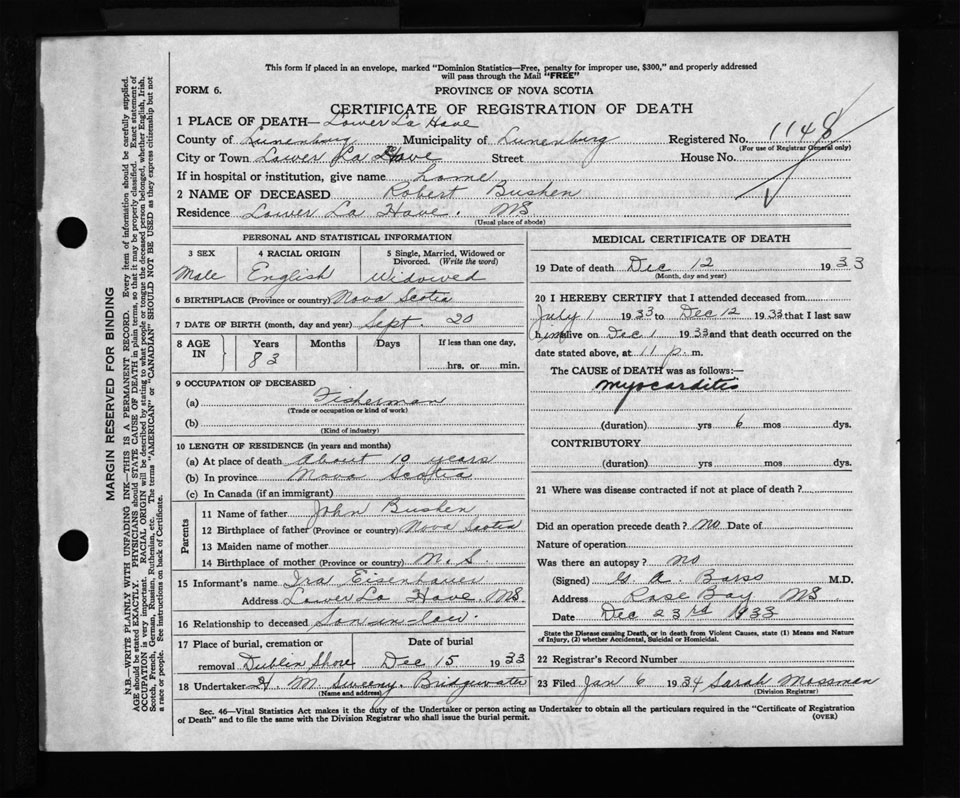 This form if placed in an envelope, marked "Dominion Statistics—Free, penalty for improper use, $300," and properly addressed
will pass through the Mail "FREE"
FORM 6.
PROVINCE OF NOVA SCOTIA
CERTIFICATE OF REGISTRATION OF DEATH
1 PLACE OF DEATH— Lower La Have
County of Lunenburg Municipality of Lunenburg Registered No. 1148
(For use of Registrar General only)
City or Town Lower La Have Street House No.
If in hospital or institution, give name home
2 NAME OF DECEASED Robert Bushen
Residence Lower La Have. NS
(Usual place of abode)
PERSONAL AND STATISTICAL INFORMATION
3 SEX
Male
4 RACIAL ORIGIN
English
5 Single, Married, Widowed or
Divorced. (Write the word)
Widowed
6 BIRTHPLACE (Province or country) Nova Scotia
7 DATE OF BIRTH (month, day and year) Sept. 20
8 AGE
IN
Years
83
Months
Days
If less than one day,
hrs. or min.
9 OCCUPATION OF DECEASED
(a) Fisherman
(Trade or occupation or kind of work)
(b)
(Kind of industry)
10 LENGTH OF RESIDENCE (in years and months)
(a) At place of death About 10 years
(b) In province Nova Scotia
(c) In Canada (if an immigrant)
Parents
11 Name of father John Bushen
12 Birthplace of father (Province or country) Nova Scotia
13 Maiden name of mother
14 Birthplace of mother (Province or country) N.S.
15 Informant's name Ira Eisenhauer
Address Lower La Have. NS
16 Relationship to deceased Son in law.
17 Place of burial, cremation or
removal Dublin Shore
Date of burial
Dec 15 1933
18 Undertaker M Sweeny. Bridgewater
(Name and address)
MEDICAL CERTIFICATE OF DEATH
19 Date of death Dec 12 1933
(Month, day and year)
20 I HEREBY CERTIFY that I attended deceased from
July 1 1933 to Dec 12 1933 that I last saw
him alive on Dec 1 1933 and that death occurred on
date stated above, at 11 p. m.
The CAUSE of DEATH was as follows:—
myocarditis
(duration) yrs 6 mos dys.
CONTRIBUTORY
(duration) yrs. mos. dys.
21 Where was disease contracted if not at place of death?
Did an operation precede death? no Date of
Nature of operation
Was there an autopsy? no
(Signed) G. A. Barss M.D.
Address Rose Bay NS
Date Dec 23rd 1933
State the Disease causing Death, or in death from Violent Causes, state (1) Means and Nature
of Injury, (2) whether Accidental, Suicidal or Homicidal.
22 Registrar's Record Number
23 Filed Jan 6 1934 Sarah Mossman
(Division Registrar)
Sec. 46—Vital Statistics Act makes it the duty of the Undertaker or person acting as Undertaker to obtain all the particulars required in the "Certificate of Registration
of Death" and to file the same with the Division Registrar who shall issue the burial permit.
(OVER)
MARGIN RESERVED FOR BINDING
N.B.—WRITE PLAINLY WITH UNFADING INK—THIS IS A PERMANENT RECORD. Every item of information should be carefully supplied.
AGE should be stated EXACTLY. PHYSICIANS should STATE CAUSE OF DEATH in plain terms, so that it may be properly classified. Exact statement of
OCCUPATION is very important. RACIAL ORIGIN will be described by stating to what people or tongue the deceased person belonged, whether English, Irish,
Scotch, French, German, Russian, Ruthenian, etc. The terms "AMERICAN" or "CANADIAN" SHOULD NOT BE USED as they express citizenship but not
a race or people. See instructions on back of Certificate.